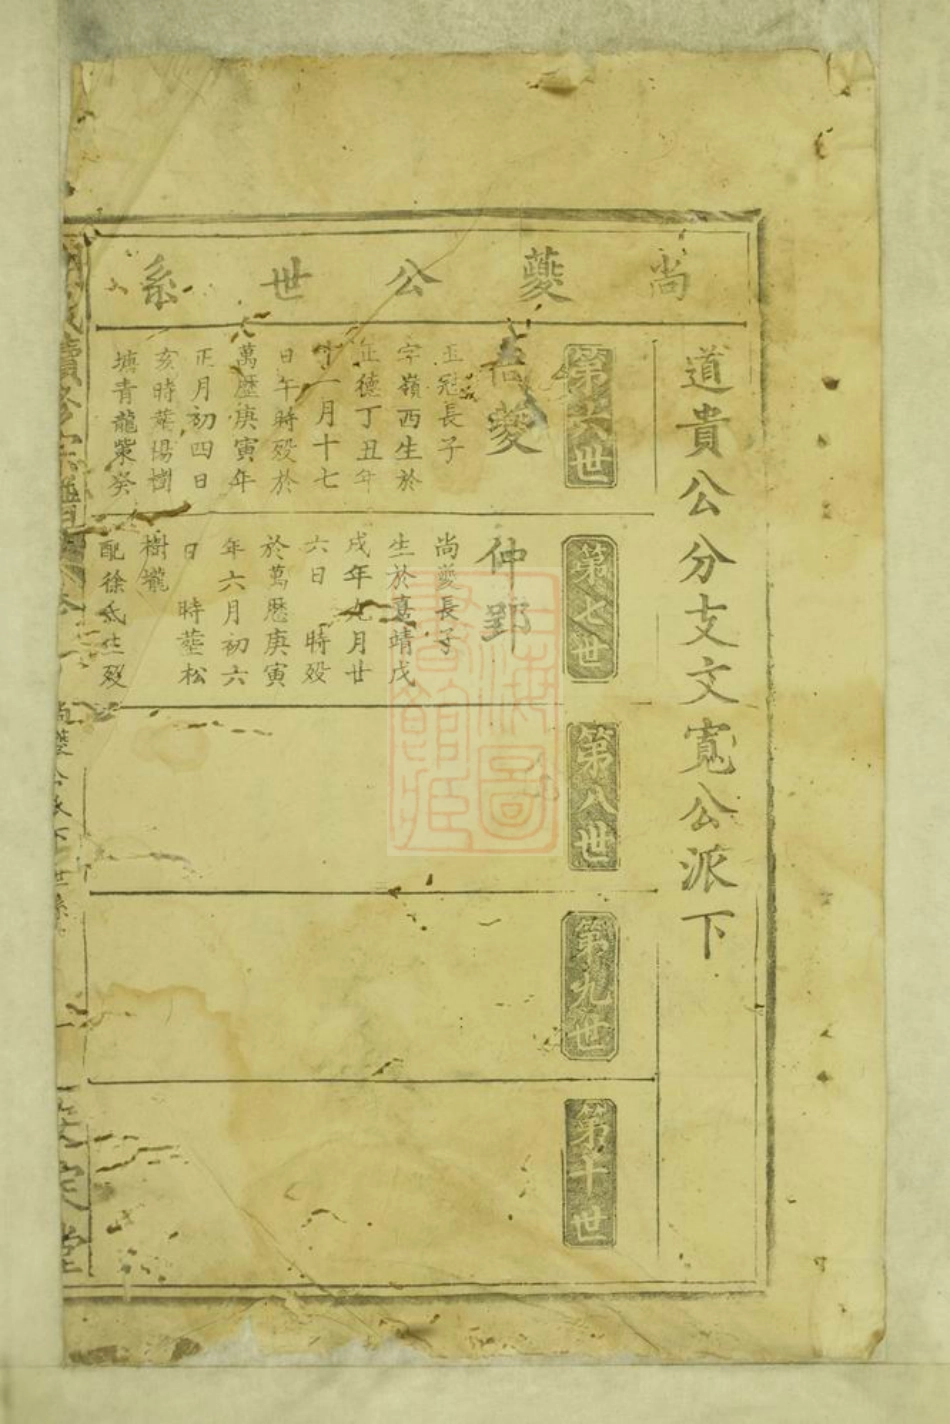 尚夔公世系
道貴公分支文寬公派下
第六世
尚夔
玉冠長子
字嶺西生於
正德丁丑年
十一月十七
日午時殁於
萬歷庚寅年
正月初四日
亥時塟楊樹
塘青龍桨癸
第七世
仲郢
尚夔長子
生於嘉靖戊
戌年九月廿
六日 時殁
於萬歷庚寅
年六月初六
日 時塟松
樹壠
配徐氏生殁
第八世
第九世
第十世
續修宗譜
尚夔公派下世系